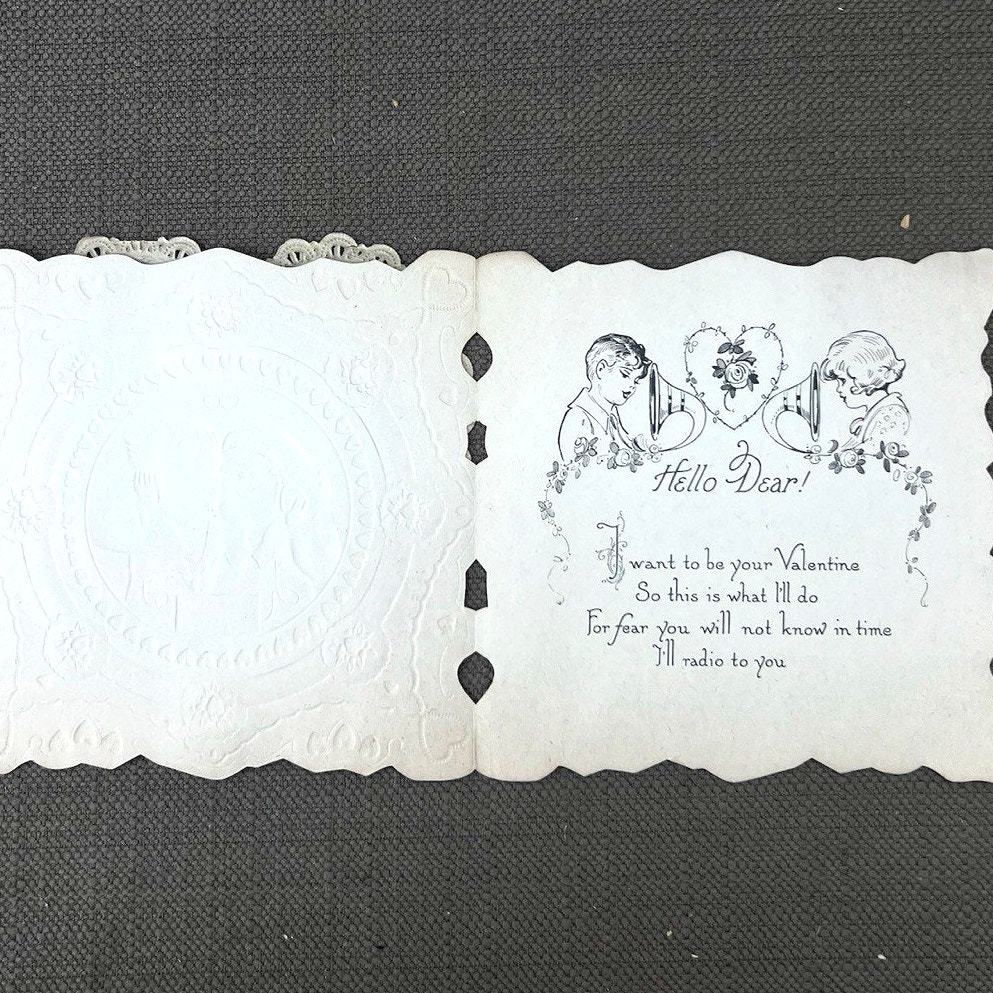 Hello Dear!
I want to be your Valentine
So this is what I'll do
For fear you will not know in time
I'll radio to you